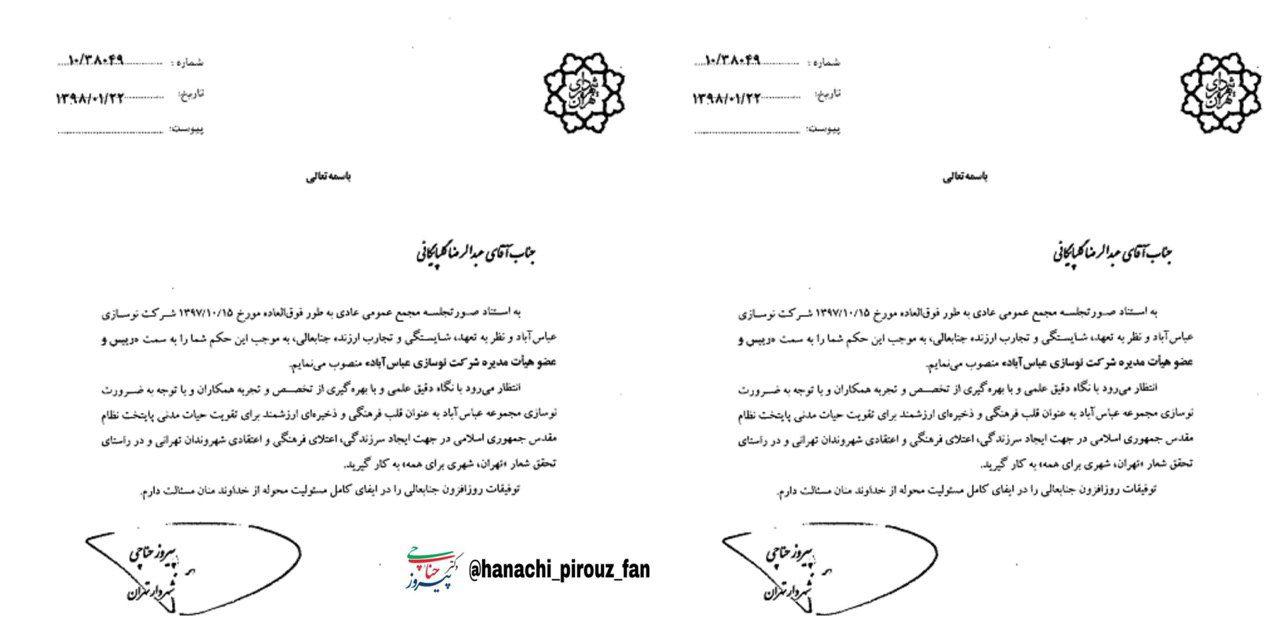 شهرداری تهران
شماره: ۱۰/۳۸۰۴۹
تاریخ: ۱۳۹۸/۰۱/۲۲
پیوست:
باسمه تعالی
جناب آقای عبدالرضا گلپایگانی
به استناد صورتجلسه مجمع عمومی عادی به طور فوق‌العاده مورخ ۱۳۹۷/۱۰/۱۵ شرکت نوسازی
عباس‌آباد و نظر به تعهد، شایستگی و تجارب ارزنده جنابعالی، به موجب این حکم شما را به سمت «رییس و
عضو هیأت مدیره شرکت نوسازی عباس‌آباد» منصوب می‌نمایم.
انتظار می‌رود با نگاه دقیق علمی و با بهره‌گیری از تخصص و تجربه همکاران و با توجه به ضرورت
نوسازی مجموعه عباس‌آباد به عنوان قلب فرهنگی و ذخیره‌ای ارزشمند برای تقویت حیات مدنی پایتخت نظام
مقدس جمهوری اسلامی در جهت ایجاد سرزندگی، اعتلای فرهنگی و اعتقادی شهروندان تهرانی و در راستای
تحقق شعار «تهران، شهری برای همه» به کار گیرید.
توفیقات روزافزون جنابعالی را در ایفای کامل مسئولیت محوله از خداوند منان مسئالت دارم.
پیروز حناچی
شهردار تهران
شهرداری تهران
شماره: ۱۰/۳۸۰۴۹
تاریخ: ۱۳۹۸/۰۱/۲۲
پیوست:
باسمه تعالی
جناب آقای عبدالرضا گلپایگانی
به استناد صورتجلسه مجمع عمومی عادی به طور فوق‌العاده مورخ ۱۳۹۷/۱۰/۱۵ شرکت نوسازی
عباس‌آباد و نظر به تعهد، شایستگی و تجارب ارزنده جنابعالی، به موجب این حکم شما را به سمت «رییس و
عضو هیأت مدیره شرکت نوسازی عباس‌آباد» منصوب می‌نمایم.
انتظار می‌رود با نگاه دقیق علمی و با بهره‌گیری از تخصص و تجربه همکاران و با توجه به ضرورت
نوسازی مجموعه عباس‌آباد به عنوان قلب فرهنگی و ذخیره‌ای ارزشمند برای تقویت حیات مدنی پایتخت نظام
مقدس جمهوری اسلامی در جهت ایجاد سرزندگی، اعتلای فرهنگی و اعتقادی شهروندان تهرانی و در راستای
تحقق شعار «تهران، شهری برای همه» به کار گیرید.
توفیقات روزافزون جنابعالی را در ایفای کامل مسئولیت محوله از خداوند منان مسئالت دارم.
پیروز حناچی
شهردار تهران
دکتر پیروز حناچی
@hanachi_pirouz_fan